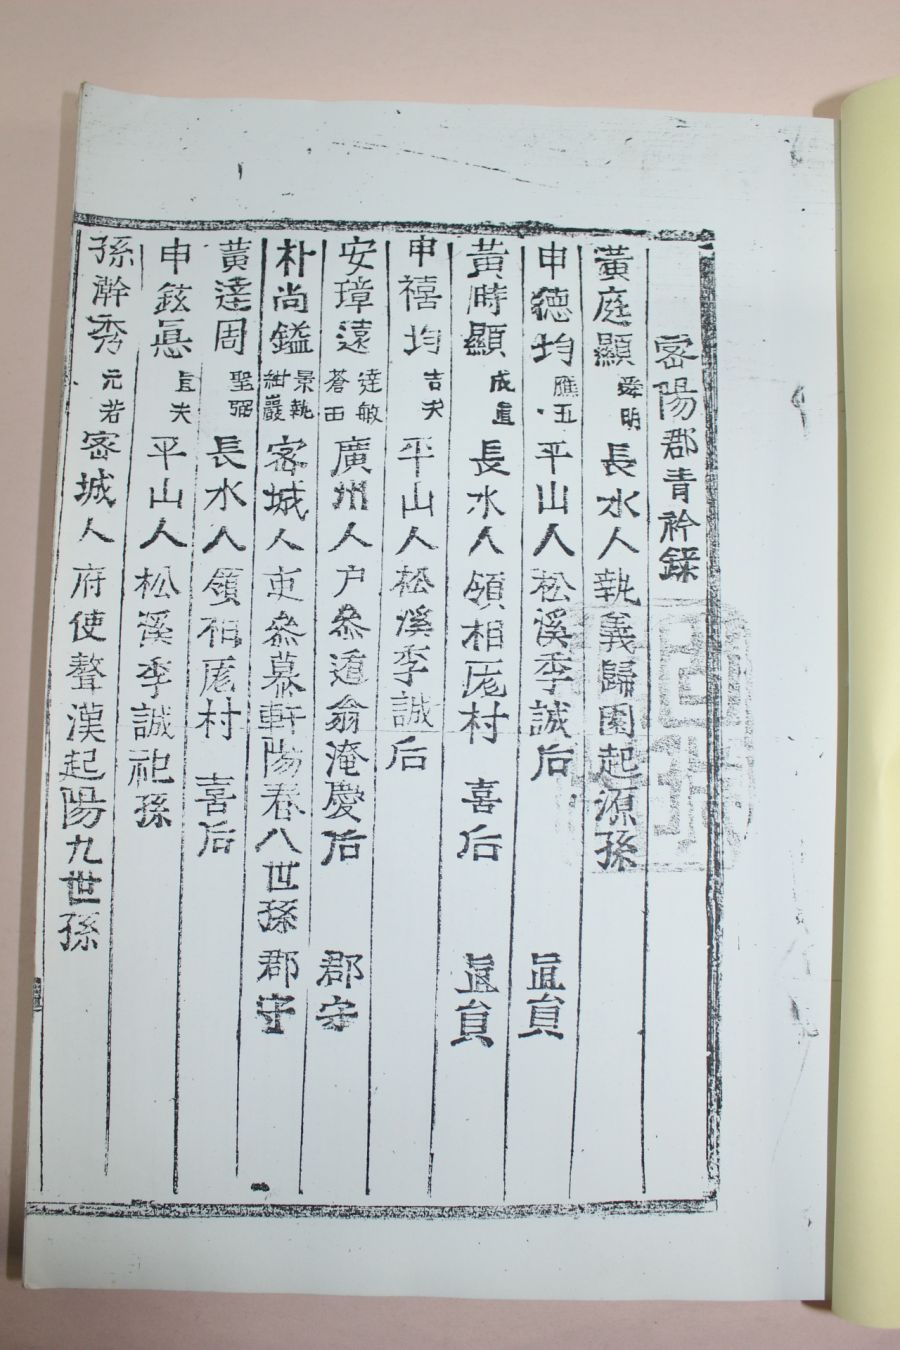 密陽郡青衿錄
黃庭顯 舜明 長水人 執義歸園起源孫
申德均 應五 平山人 松溪季誠后 直員
黃時顯 成直 長水人 領相厖村 喜后 直員
申禧均 吉夫 平山人 松溪季誠后
安璋遠 達敏 蒼田 廣州人 戶參遁翁淹慶后 郡守
朴尚鎰 景執 紺巖 密城人 吏參慕軒陽春八世孫 郡守
黃達周 聖弼 長水人 領相厖村 喜后
申鉉 夫 平山人 松溪季誠祀孫
孫澣秀 元若 密城人 府使聱漢起陽九世孫